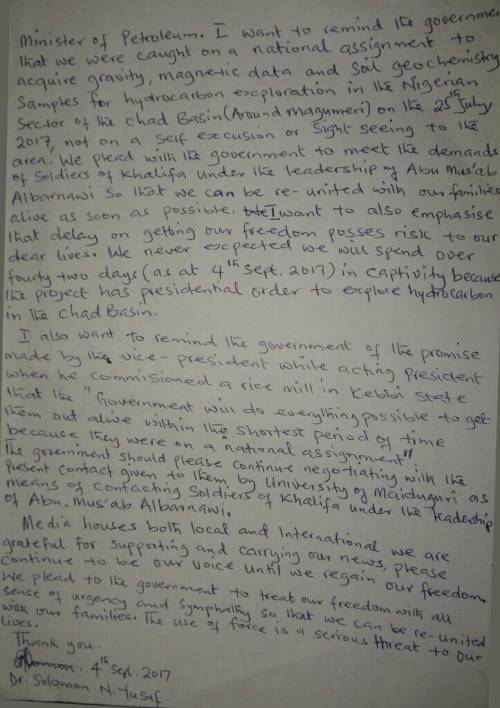 Minister of Petroleum. I want to remind the governmen
that we were caught on a national assignment to
acquire gravity, magnetic data and soil geochemistry
samples for hydrocarbon excploration in the Nigerian
sector of the Chad Basin (Around Magumeri) on the 25th July
2017, not on a self excusion or sight seeing to the
area. We plead with the government to meet the demands
of Soldiers of Khalifa under the leadership of Abu Mus'ab
Albarnawi so that we can be re-united with our families
alive as soon as possible. I want to also emphasise
that delay on getting our freedom posses risk to our
dear lives. We never excpected we will spend over
fourty two days (as at 4th Sept. 2017) in captivity because
the project has presidential order to explore hydrocarbon
in the Chad Basin.
I also want to remind the government of the promise
made by the vice-president while acting president
when he commisioned a rice mill in Kebbi state
that the "Government will do everything possible to get
them out alive within the shortest period of time
because they were on a national assignment"
The government should please continue negotiating with the
present contact given to them by University of Maiduguri as
means of contacting Soldiers of Khalifa under the leadership
of Abu. Mus'ab Albarnawi.
Media houses both local and International we are
grateful for supporting and carrying our news, please
continue to be our voice until we regain our freedom.
We plead to the government to treat our freedom with all
sense of urgency and symphathy so that we can be re-united
with our families. The use of force is a serious threat to our
lives.
Thank you.
4th Sept. 2017
Dr. Solomon N. Yusuf